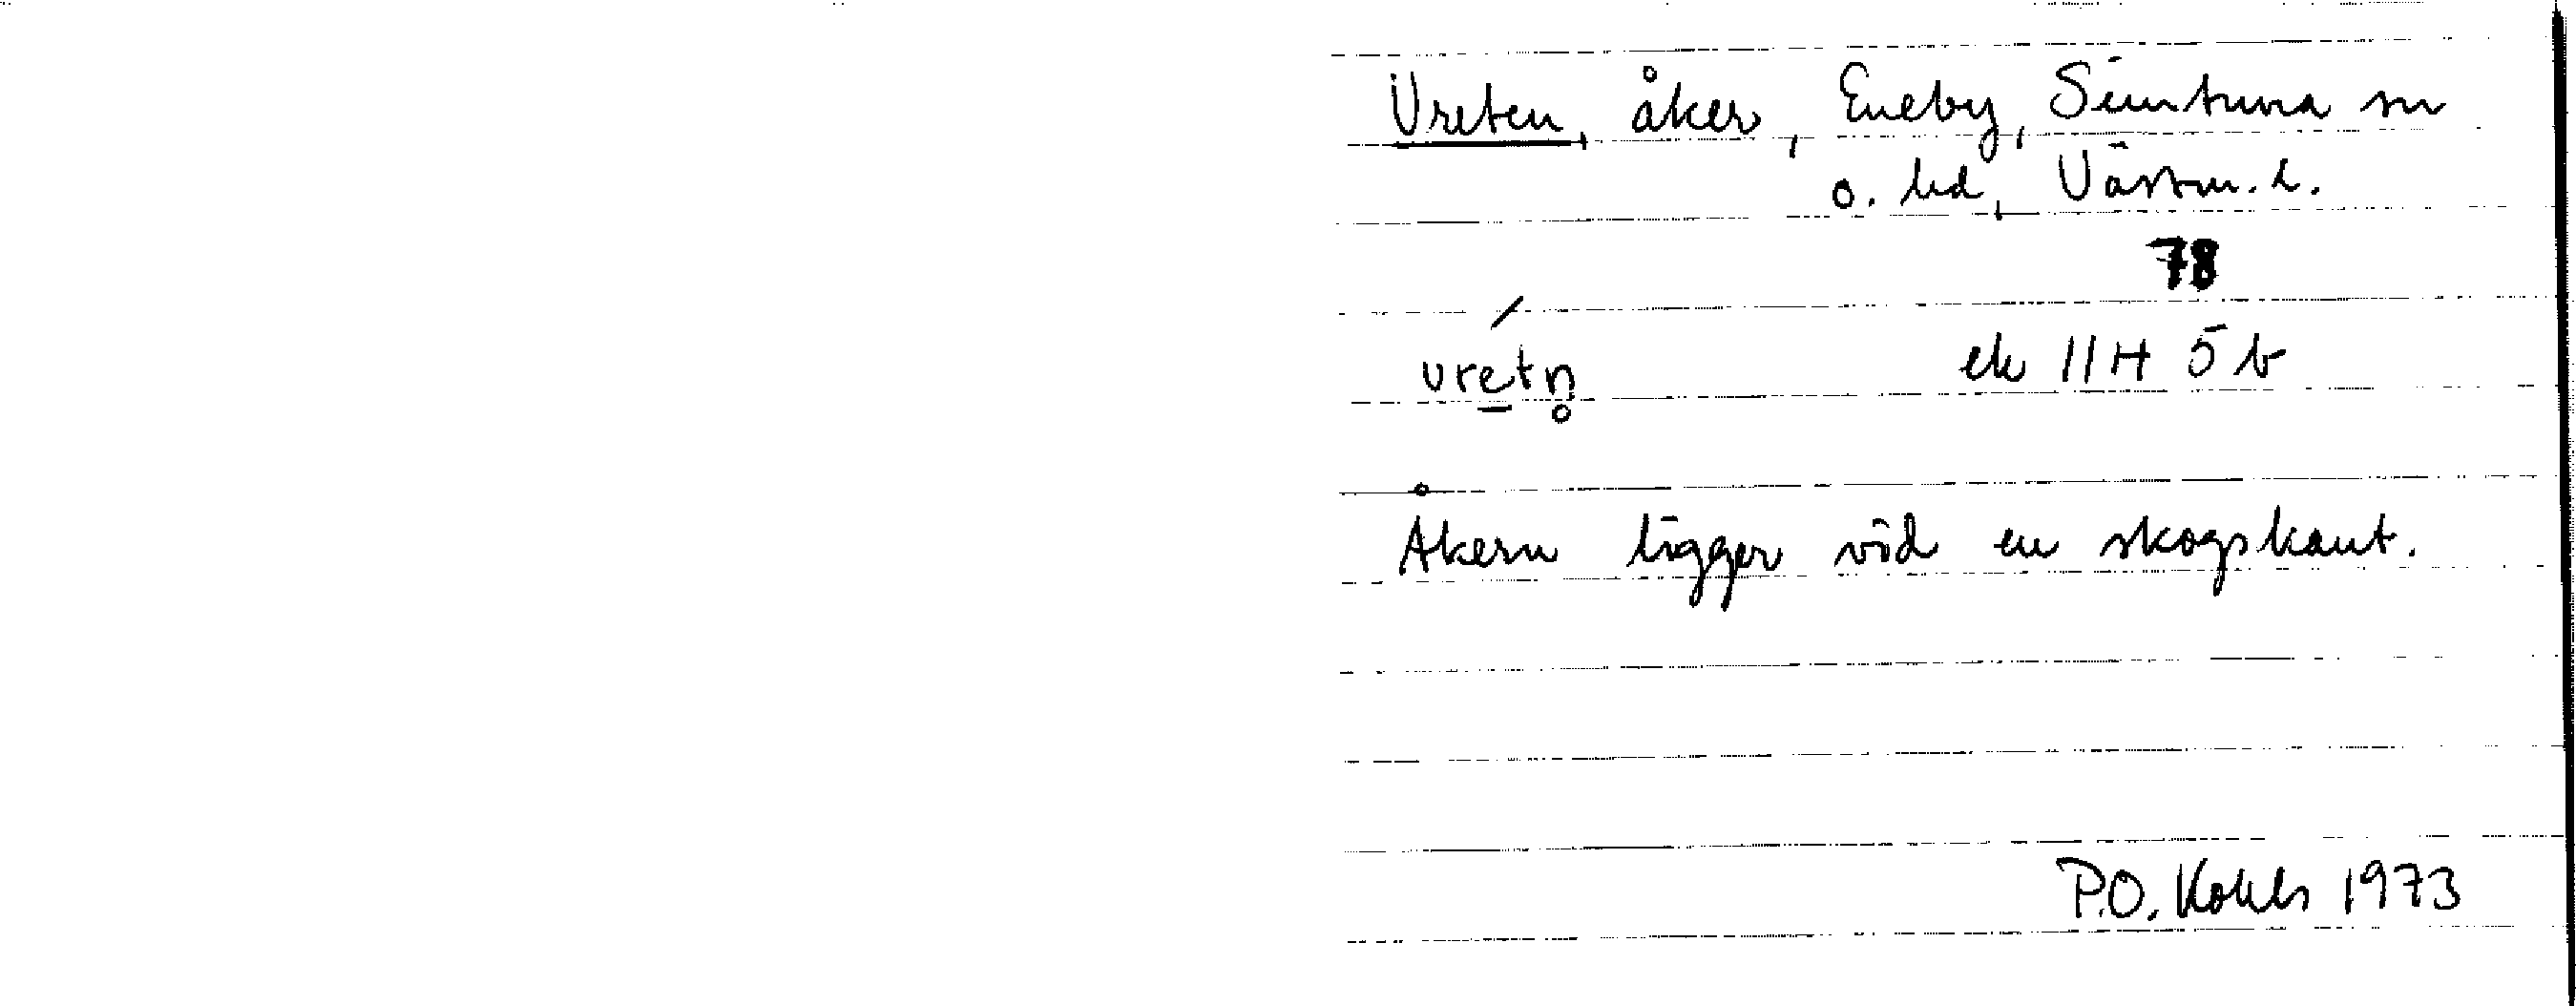 Vreten, åker, Eneby, Simtuna sn
o. hd, Västm. l.
78
vretn̥ ek 11H 5b
Åkern ligger vid en skogskant.
P.O. Kohls 1973